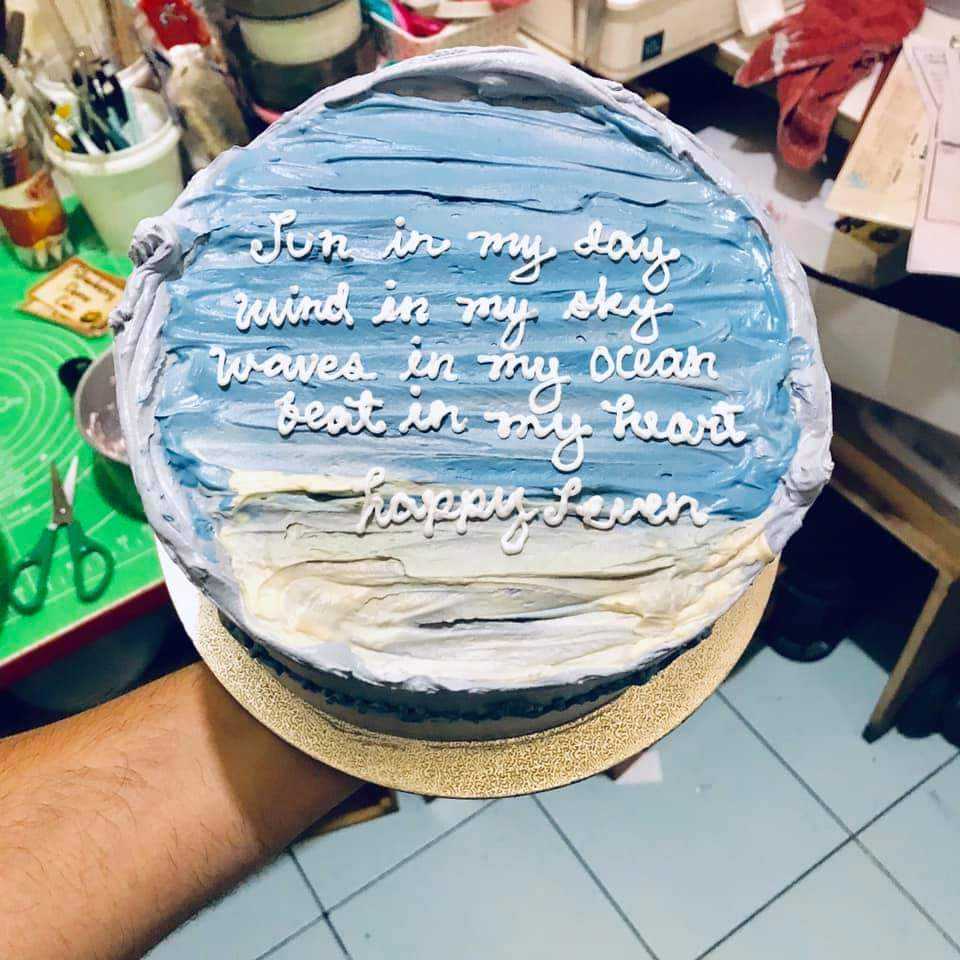 Sun in my day
wind in my sky
waves in my ocean
beat in my heart
happy Seven